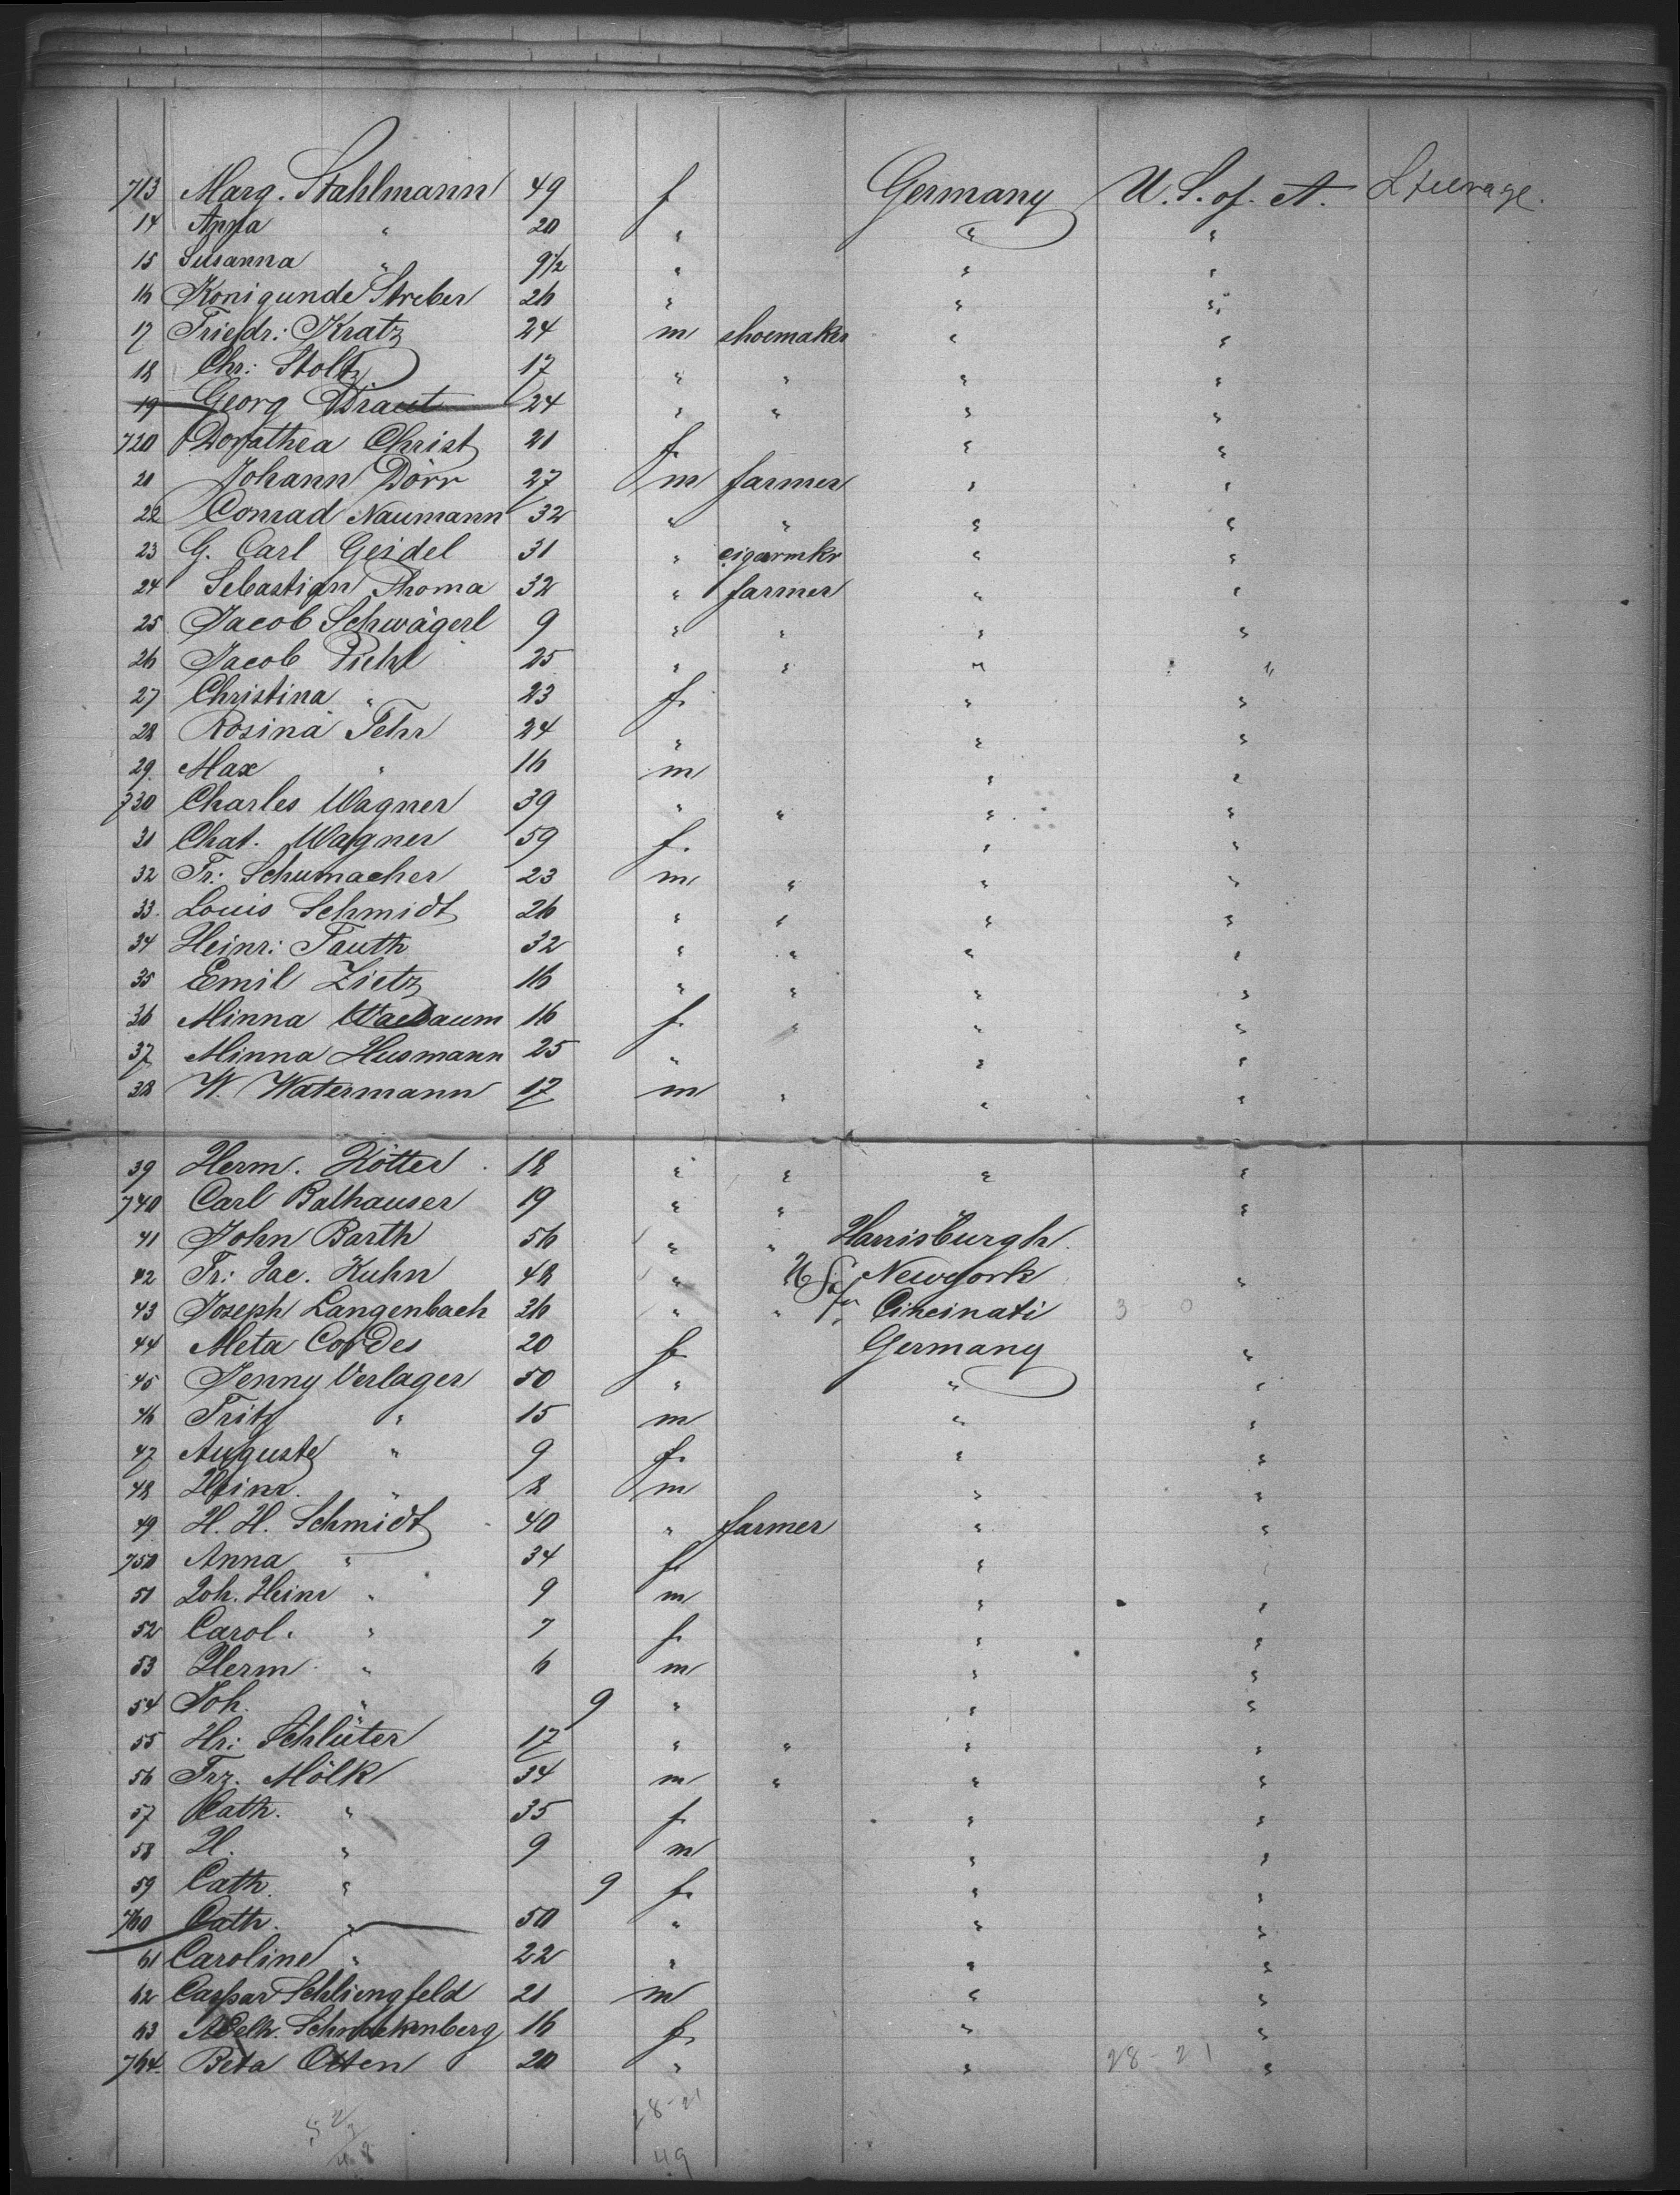 713 Marg. Stahlmann 49 f Germany U. S. of. A. Steerage.
14 Anna " 20 " " "
15 Susanna " 9½ " " "
16 Konigunde Streber 26 " " "
17 Friedr: Kratz 24 m shoemaker " "
18 Chr: Stoltz 17 " " " "
19 Georg Braut 24 " " " "
720 Dorathea Christ 21 f. " "
21 Johann Dörr 27 m farmer " "
22 Conrad Naumann 32 " " " "
23 G. Carl Geidel 31 " cigarmkr " "
24 Sebastian Thoma 32 " farmer " "
25 Jacob Schwägerl 9 " " " "
26 Jacob Piehl 25 " " " "
27 Christina " 23 f. " "
28 Rosina Fehr 24 " " "
29. Max " 16 m " "
730 Charles Wagner 39 " " " "
31 Chat. Wagner 59 f. " "
32 Fr: Schumacher 23 m " " "
33. Louis Schmidt 26 " " " "
34 Heinr: Fauth 32 " " " "
35 Emil Zietz 16 " " " "
36 Minna 16 f. " " "
37 Minna Husmann 25 " " "
38 W. Watermann 17 m " " "
39 Herm. Kötter 18 " " " "
740 Carl Balhauser 19 " " "
41 John Barth 56 " " Harrisburgh.
42 Fr: Jac. Kuhn 48 " " Newyork "
43 Joseph Langenbach 26 " " Cincinati 3 0
44 Meta Cordes 20 f. Germany "
45 Jenny Verlager 50 " " "
46 Fritz " 15 m " "
47 Auguste " 9 f. " "
48 Heinr. " 8 m " "
49 H. H. Schmidt 40 " farmer " "
750 Anna " 34 f " "
51 Joh. Heinr " 9 m " "
52 Carol. " 7 f. " "
53 Herm " 6 m " "
54 Joh. " 9 " " "
55 Hr: Schlüter 17 " " " "
56 Frz. Mölk 34 m " " "
57 Cath. " 35 f " "
58 H. " 9 m " "
59 Cath. " 9 f. " "
760 Cath. " 50 " " "
61 Caroline " 22 " " "
62 Caspar Schliengfeld 21 m " "
63 Adelh. Schnackenberg 16 f. " "
764. Beta Otten 20 " " 28-21 "
28-21
49